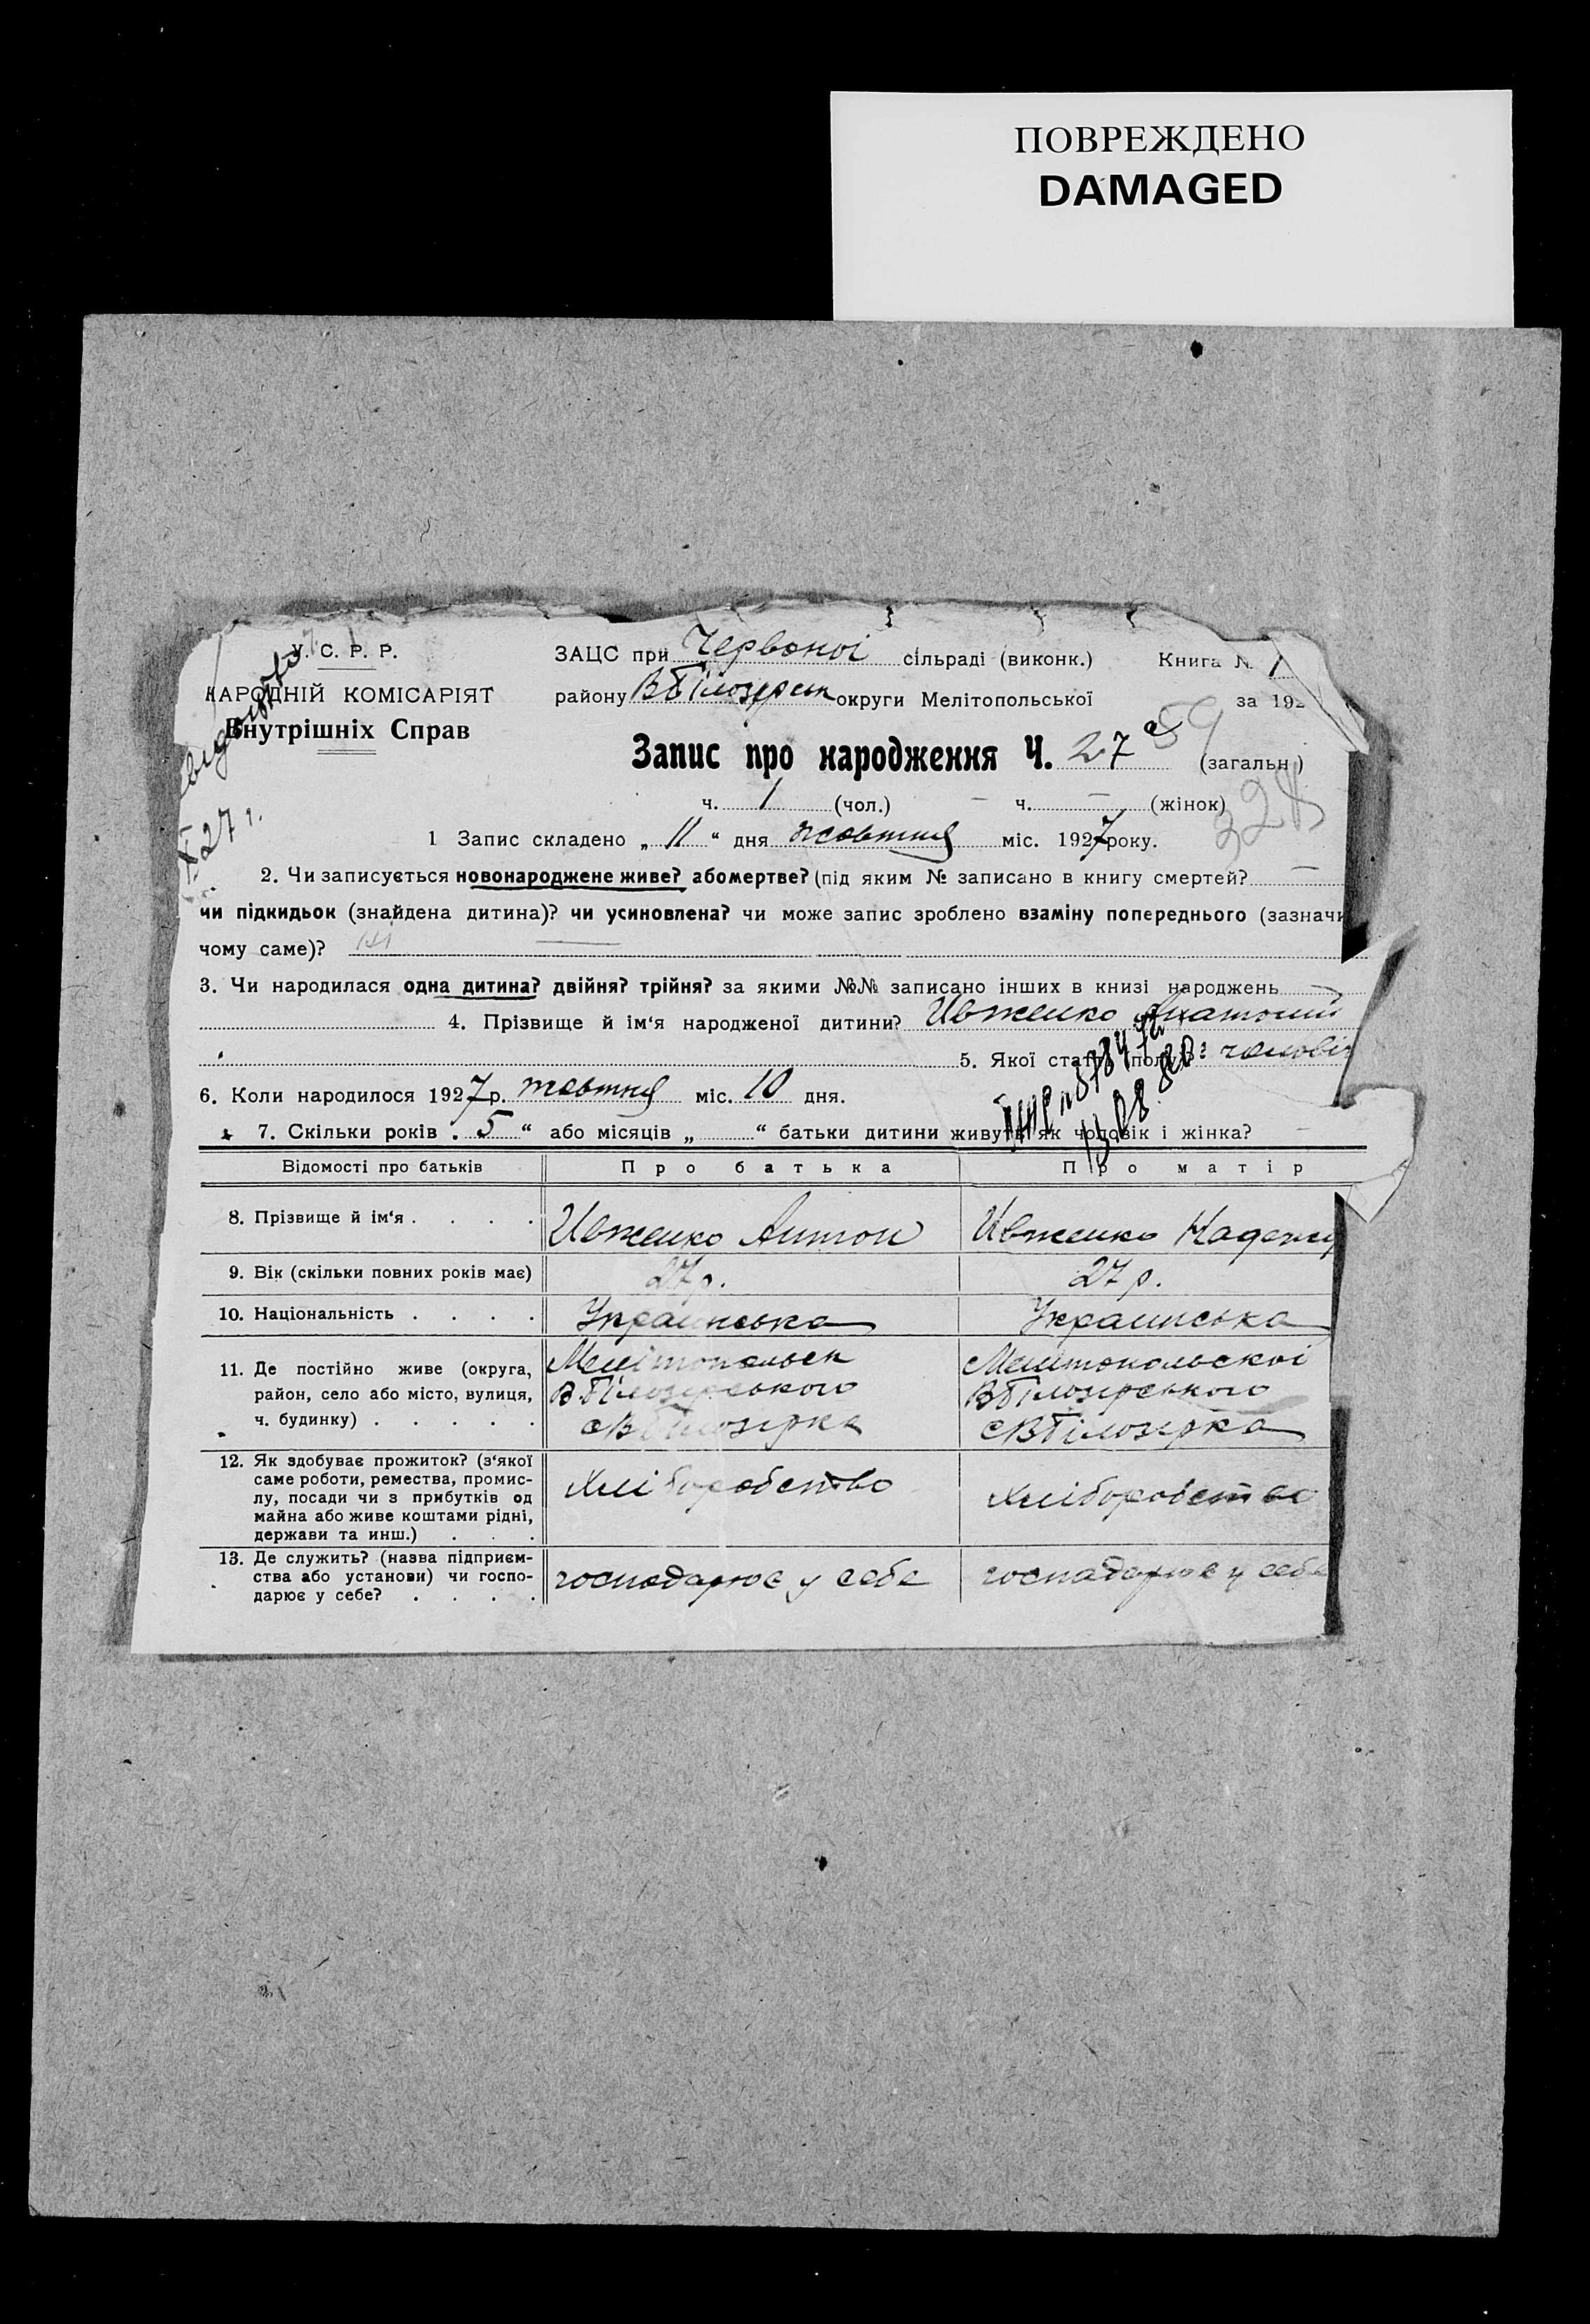 ПОВРЕЖДЕНО
DAMAGED
У. С. Р. Р.
НАРОДНІЙ КОМІСАРІЯТ
Внутрішніх Справ
ЗАЦС при Червоної сільраді (виконк.) Книга № 1
району ВБілозерськ округи Мелітопольської за 192
Запис про народження Ч. 27 (загальн)
59
328
ч. 1 (чол.) — ч. — (жінок)
1 Запис складено „ 11 “ дня жовтня міс. 1927 року.
27 г.
2. Чи записується новонароджене живе? або мертве? (під яким № записано в книгу смертей? —
чи підкидьок (знайдена дитина)? чи усиновлена? чи може запис зроблено взаміну попереднього (зазначи
чому саме)? —
3. Чи народилася одна дитина? двійня? трійня? за якими №№ записано інших в книзі народжень —
4. Прізвище й ім'я народженої дитини? Ивженко Анатолий
5. Якої статі (полу)? чоловіч
6. Коли народилося 1927 р. жовтня міс. 10 дня.
7. Скільки років „ 5 “ або місяців „ “ батьки дитини живуть як чоловік і жінка? —
Відомості про батьків Про батька Про матір
8. Прізвище й ім'я . . . . Ивженко Антон Ивженко Надежд
9. Вік (скільки повних років має) 27 р. 27 р.
10. Національність . . . . Украинська Украинська
11. Де постійно живе (округа, Мелітопольськ Мелітопольскої
район, село або місто, вулиця, ВБілозірського ВБілозірського
ч. будинку) . . . . . сВБілозірка сВБілозірка
12. Як здобуває прожиток? (з'якої
саме роботи, ремества, промис- Хліборобство Хліборобство
лу, посади чи з прибутків од
майна або живе коштами рідні,
держави та инш.) . . .
13. Де служить? (назва підприєм-
ства або установи) чи госпо- господарює у себе господарює у себе
дарює у себе? . . . .